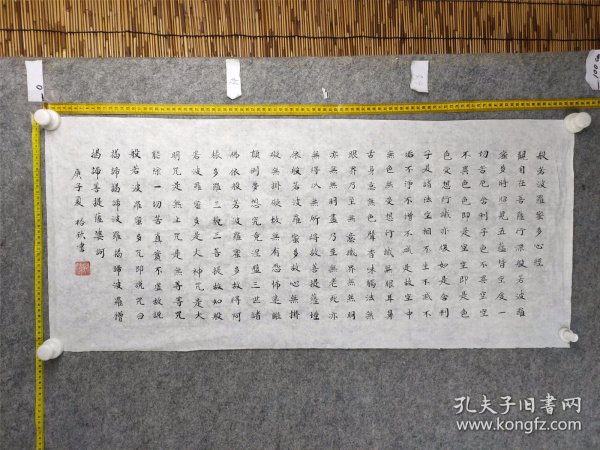 般若波羅蜜多心經
觀自在菩薩行深般若波羅
蜜多時照見五蘊皆空度一
切苦厄舍利子色不異空空
不異色色即是空空即是色
色受想行識亦復如是舍利
子是諸法空相不生不滅不
垢不淨不增不減是故空中
無色無受想行識無眼耳鼻
舌身意無色聲香味觸法無
眼界乃至無意識界無無明
亦無無明盡乃至無老死亦
無得以無所得故菩提薩埵
依般若波羅蜜多故心無掛
礙無掛礙故無有恐怖遠離
顛倒夢想究竟涅盤三世諸
佛依般若波羅蜜多故得阿
耨多羅三藐三菩提故知般
若波羅蜜多是大神咒是大
明咒是無上咒是無等等咒
能除一切苦真實不虛故說
般若波羅蜜多咒即說咒曰
揭諦揭諦波羅揭諦波羅僧
揭諦菩提薩婆訶
庚子夏 書
孔夫子旧书网
www.kongfz.com